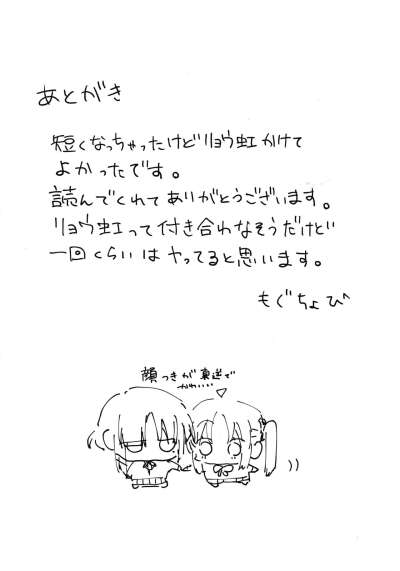 あとがき
短くなっちゃったけどリョウ虹かけて
よかったです。
読んでくれてありがとうございます。
リョウ虹って付き合わなそうだけど
一回くらいはヤってると思います。
もぐちょび
顔つきが真逆で
かわいい